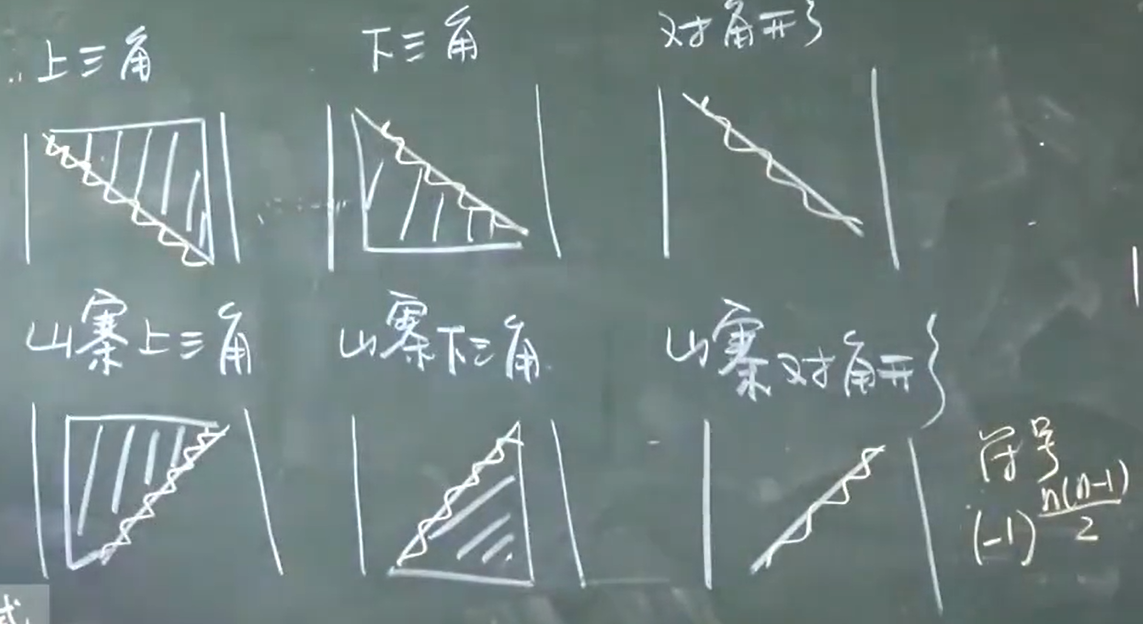 上三角
下三角
对角形
山寨上三角
山寨下三角
山寨对角形
符号
(-1)^{\frac{n(n-1)}{2}}
式